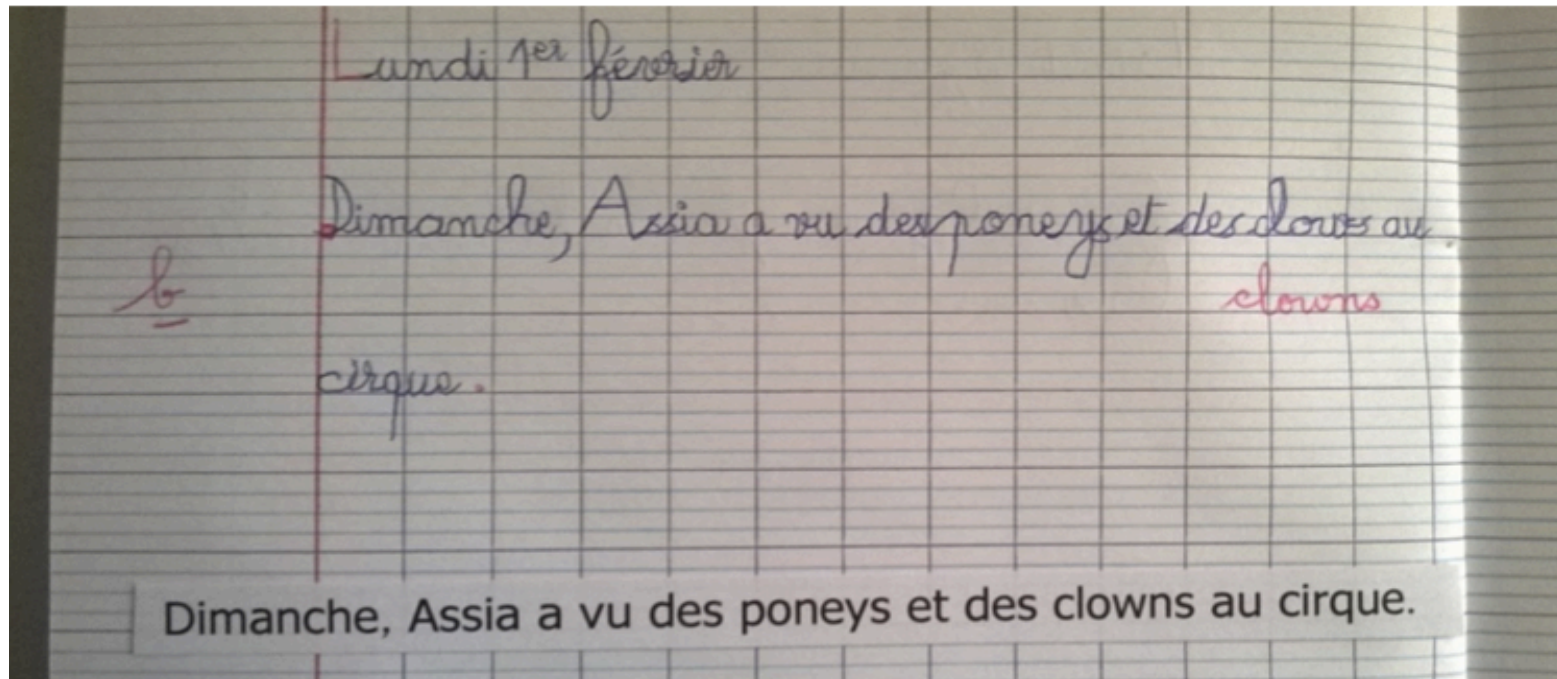 Lundi 1er février
Dimanche, Assia a vu des poneys et des clows au
b
clowns
cirque.
Dimanche, Assia a vu des poneys et des clowns au cirque.